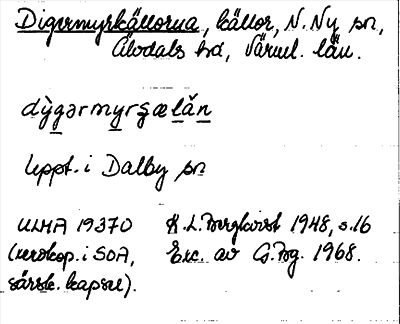 Digermyrkällorna, källor, N. Ny sn,
Älvdals hd, Värml. län.
dỳgərmyrʂælǎ̀n
Uppt. i Dalby sn
ULMA 19370 K. L. Bergkvist 1948, s. 16
(xerokop. i SOA, Exc. av G. Bg. 1968.
särsk. kapsel).